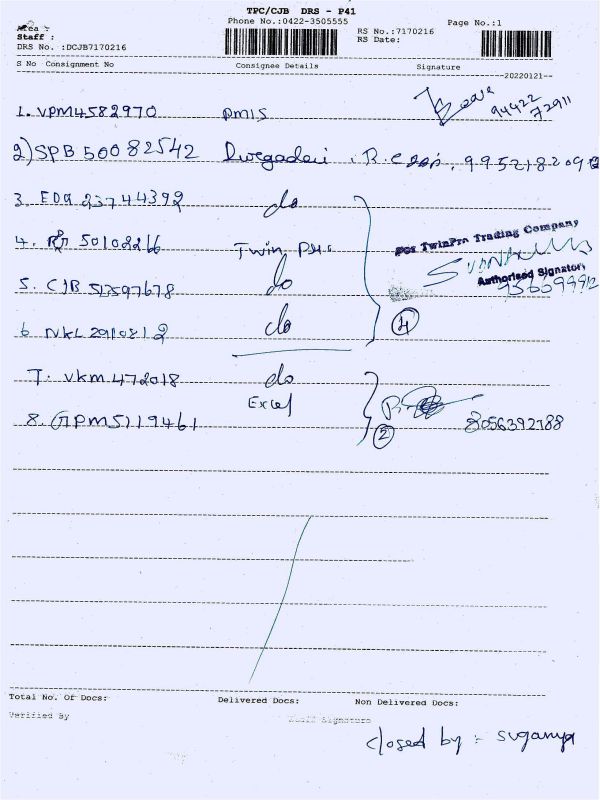 TPC/CJB DRS - P41
Phone No.:0422-3505555
Page No.:1
Area :
Staff :
RS No.:7170216
RS Date:
DRS No. :DCJB7170216
S No Consignment No Consignee Details Signature
--20220121--
1. VPM4582970 PMIS 94422 72911
2) SPB 50082542
3. EDQ 23744392 do
For TwinPro Trading Company
4. 50102216 Twin Pro
Authorised Signatory
5. CJB 513597678 do
6. NKL 2910812 do
4
7. VKM 472018 do
Excel
8. GPM5119461 8056392188
2
Total No. Of Docs: Delivered Docs: Non Delivered Docs:
Verified By Staff Signature
closed by :- suganya